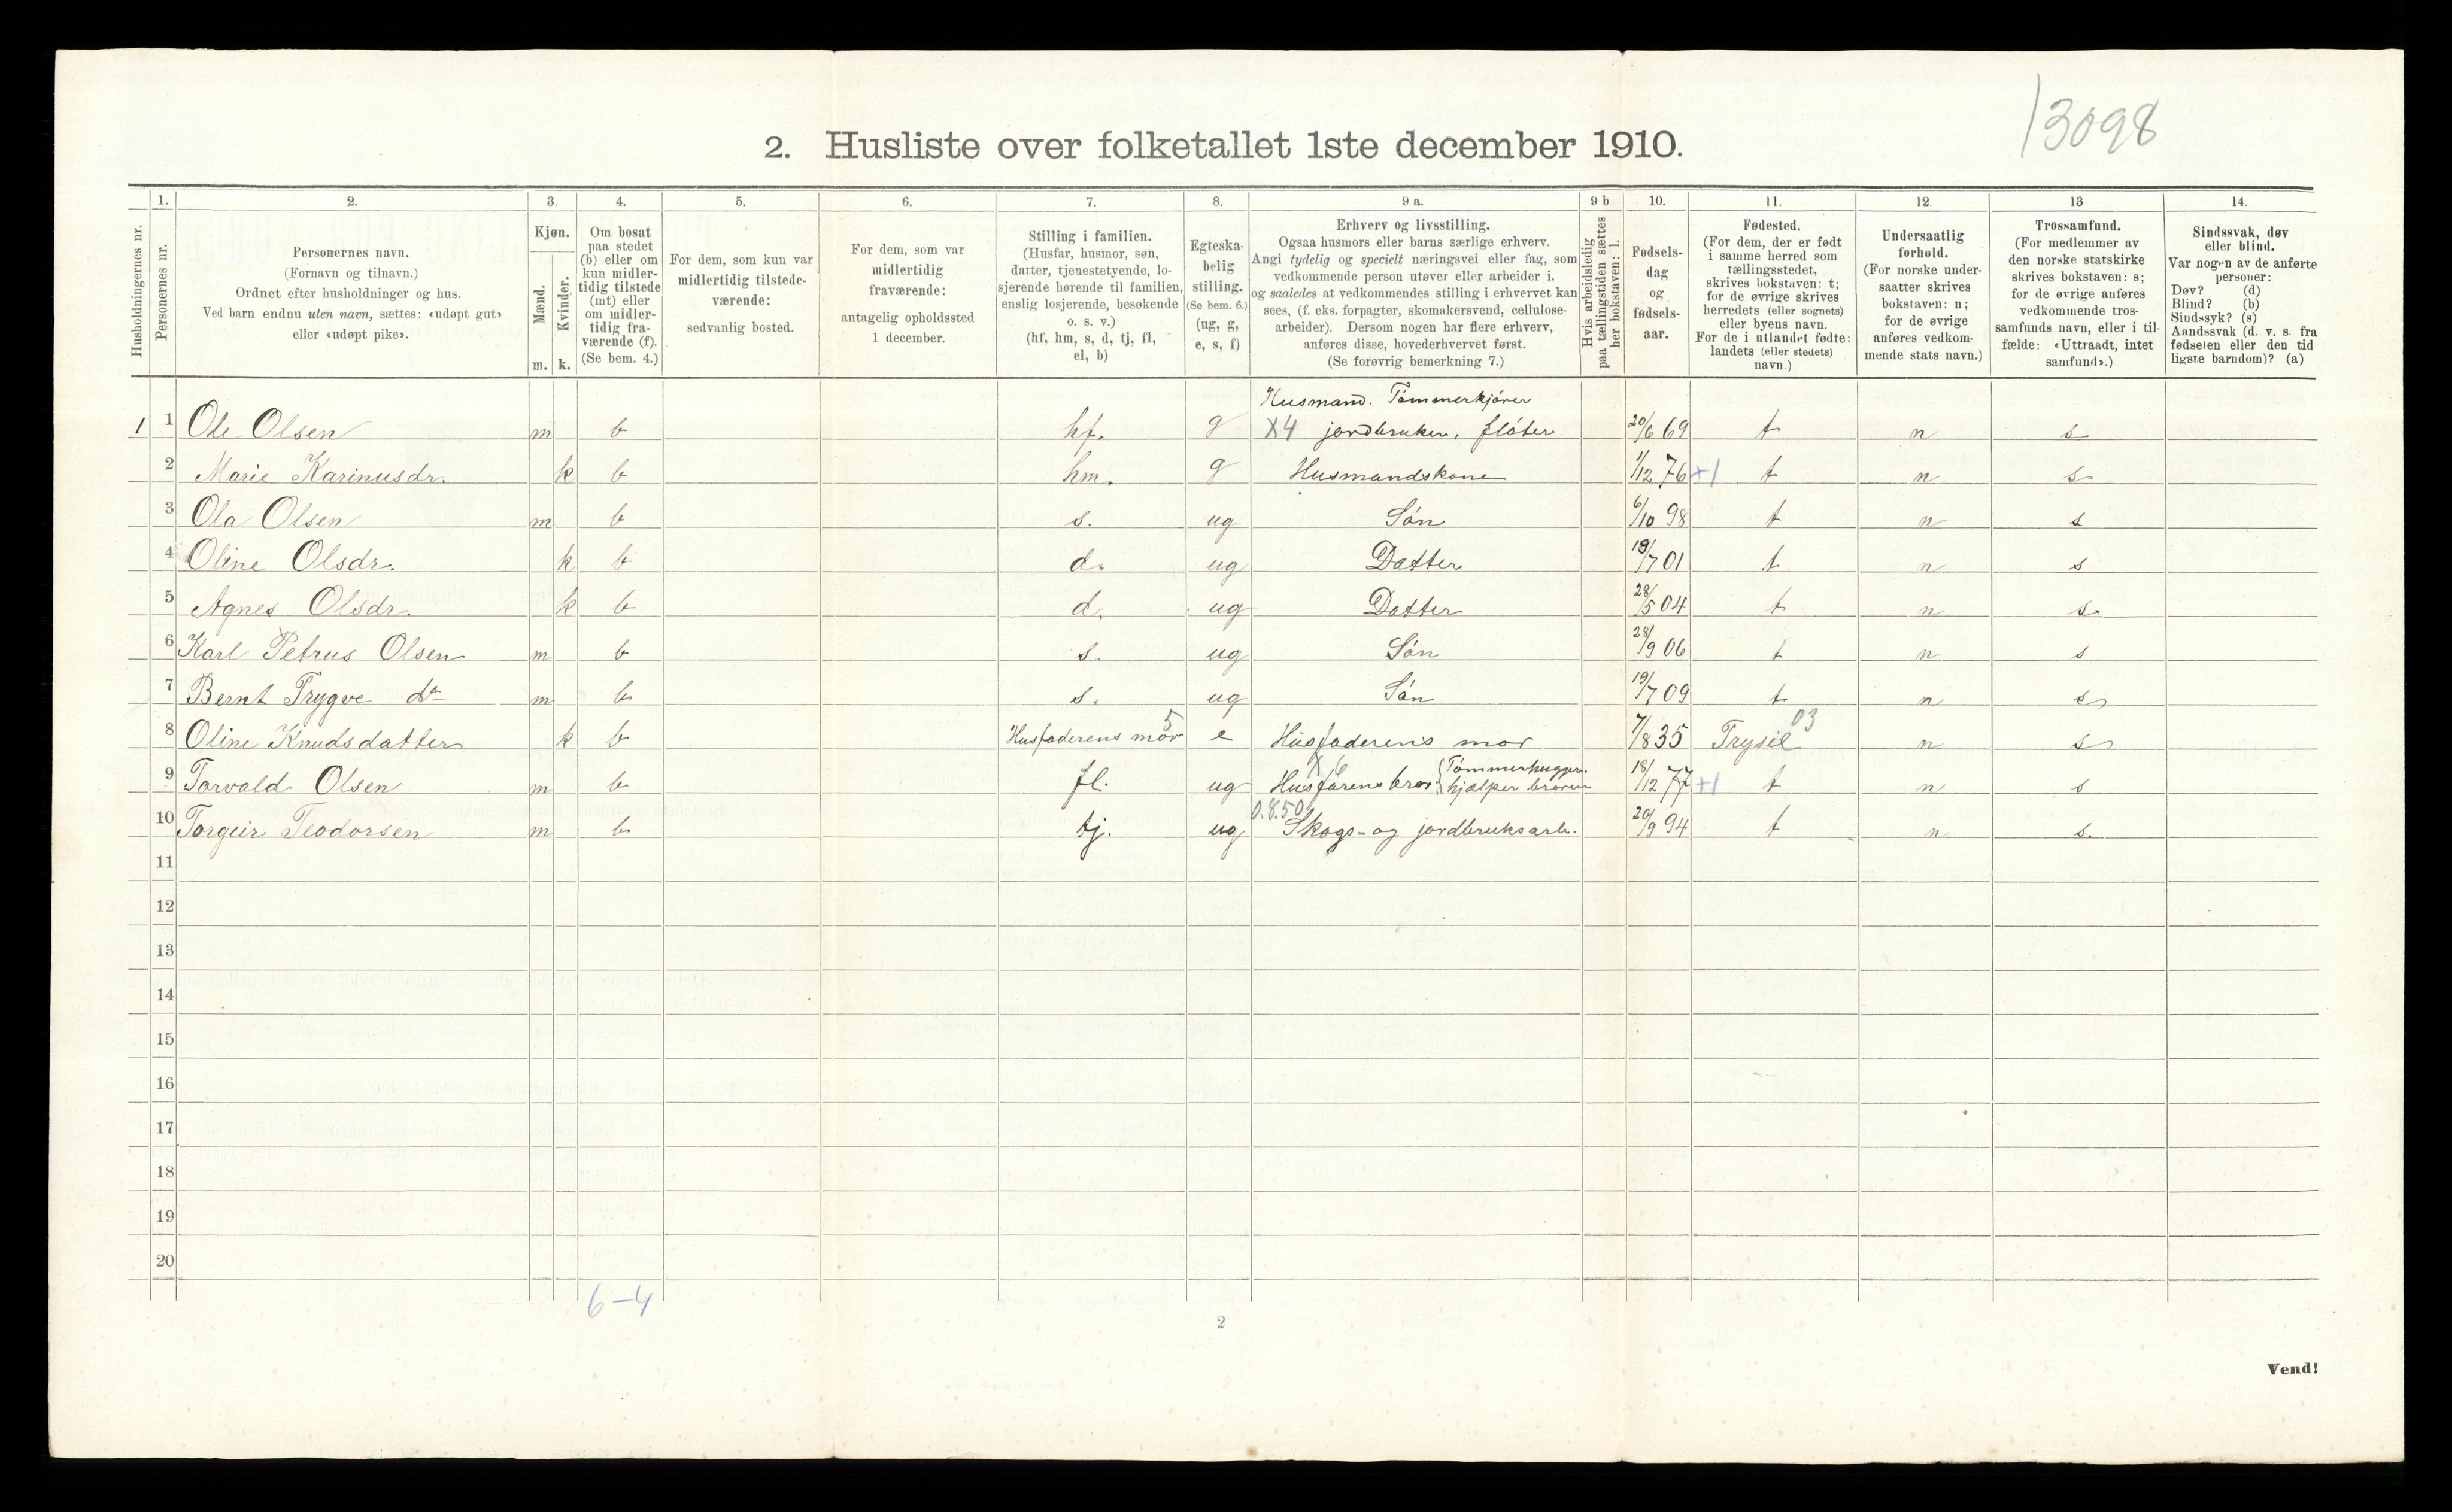 13098
2. Husliste over folketallet 1ste december 1910.
Husholdningernes nr.
1.
Personernes nr.
2.
Personernes navn.
(Fornavn og tilnavn.)
Ordnet efter husholdninger og hus.
Ved barn endnu uten navn, sættes: «udøpt gut»
eller «udøpt pike».
3.
Kjøn.
Mænd.
Kvinder.
m. k.
4.
Om bosat
paa stedet
(b) eller om
kun midler-
tidig tilstede
(mt) eller
om midler-
tidig fra-
værende (f).
(Se bem. 4.)
5.
For dem, som kun var
midlertidig tilstede-
værende:
sedvanlig bosted.
6.
For dem, som var
midlertidig
fraværende:
antagelig opholdssted
1 december.
7.
Stilling i familien.
(Husfar, husmor, søn,
datter, tjenestetyende, lo-
sjerende hørende til familien,
enslig losjerende, besøkende
o. s. v.)
(hf, hm, s, d, tj, fl,
el, b)
8.
Egteska-
belig
stilling.
(Se bem. 6.)
(ug, g,
e, s, f)
9 a.
Erhverv og livsstilling.
Ogsaa husmors eller barns særlige erhverv.
Angi tydelig og specielt næringsvei eller fag, som
vedkommende person utøver eller arbeider i,
og saaledes at vedkommendes stilling i erhvervet kan
sees, (f. eks. forpagter, skomakersvend, cellulose-
arbeider). Dersom nogen har flere erhverv,
anføres disse, hovederhvervet først.
(Se forøvrig bemerkning 7.)
9 b
Hvis arbeidsledig
paa tællingstiden sættes
her bokstaven: l.
10.
Fødsels-
dag
og
fødsels-
aar.
11.
Fødested.
(For dem, der er født
i samme herred som
tællingsstedet,
skrives bokstaven: t;
for de øvrige skrives
herredets (eller sognets)
eller byens navn.
For de i utlandet fødte:
landets (eller stedets)
navn.)
12.
Undersaatlig
forhold.
(For norske under-
saatter skrives
bokstaven: n;
for de øvrige
anføres vedkom-
mende stats navn.)
13
Trossamfund.
(For medlemmer av
den norske statskirke
skrives bokstaven: s;
for de øvrige anføres
vedkommende tros-
samfunds navn, eller i til-
fælde: «Uttraadt, intet
samfund».)
14.
Sindssvak, døv
eller blind.
Var nogen av de anførte
personer:
Døv? (d)
Blind? (b)
Sindssyk? (s)
Aandssvak (d. v. s. fra
fødselen eller den tid
ligste barndom)? (a)
Husmand. Tømmerkjører
1 1 Ole Olsen m b hf. g X4 jordbruker, fløter 20/6 69 t n s
2 Marie Karinusdr. k b hm. g Husmandskone 1/12 76 +1 t n s
3 Ola Olsen m b s. ug Søn 6/10 98 t n s
4 Oline Olsdr. k b d. ug Datter 19/7 01 t n s
5 Agnes Olsdr. k b d. ug Datter 28/5 04 t n s.
6 Karl Petrus Olsen m b s. ug Søn 28/9 06 t n s
7 Bernt Trygve do m b s. ug Søn 19/7 09 t n s
8 Oline Knudsdatter k b Husfaderens mor 5 e Husfaderens mor 7/8 35 Trysil 03 n s
9 Torvald Olsen m b fl. ug X 6 Husfarens bror { Tømmerhugger. hjælper broren 18/12 77 +1 t n s
10 Torgeir Teodorsen m b tj. ug 0.8.50 Skogs- og jordbruksarb. 20/9 94 t n s.
11
12
13
14
15
16
17
18
19
20
6-4
2
Vend!